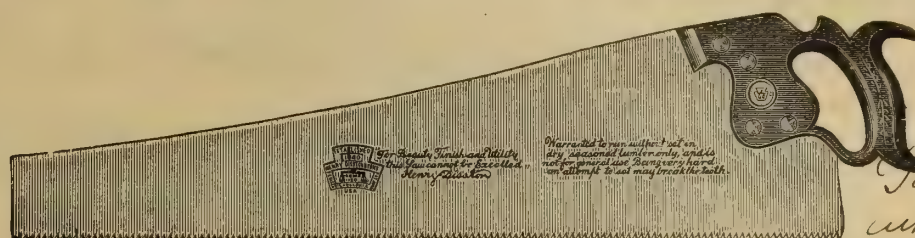 For Beauty, Finish and Utility
this Saw cannot be Excelled.
Henry Disston
Warranted to run without set in
dry seasoned lumber only, and is
not for general use. Being very hard
an attempt to set may break the teeth.
U S A
W